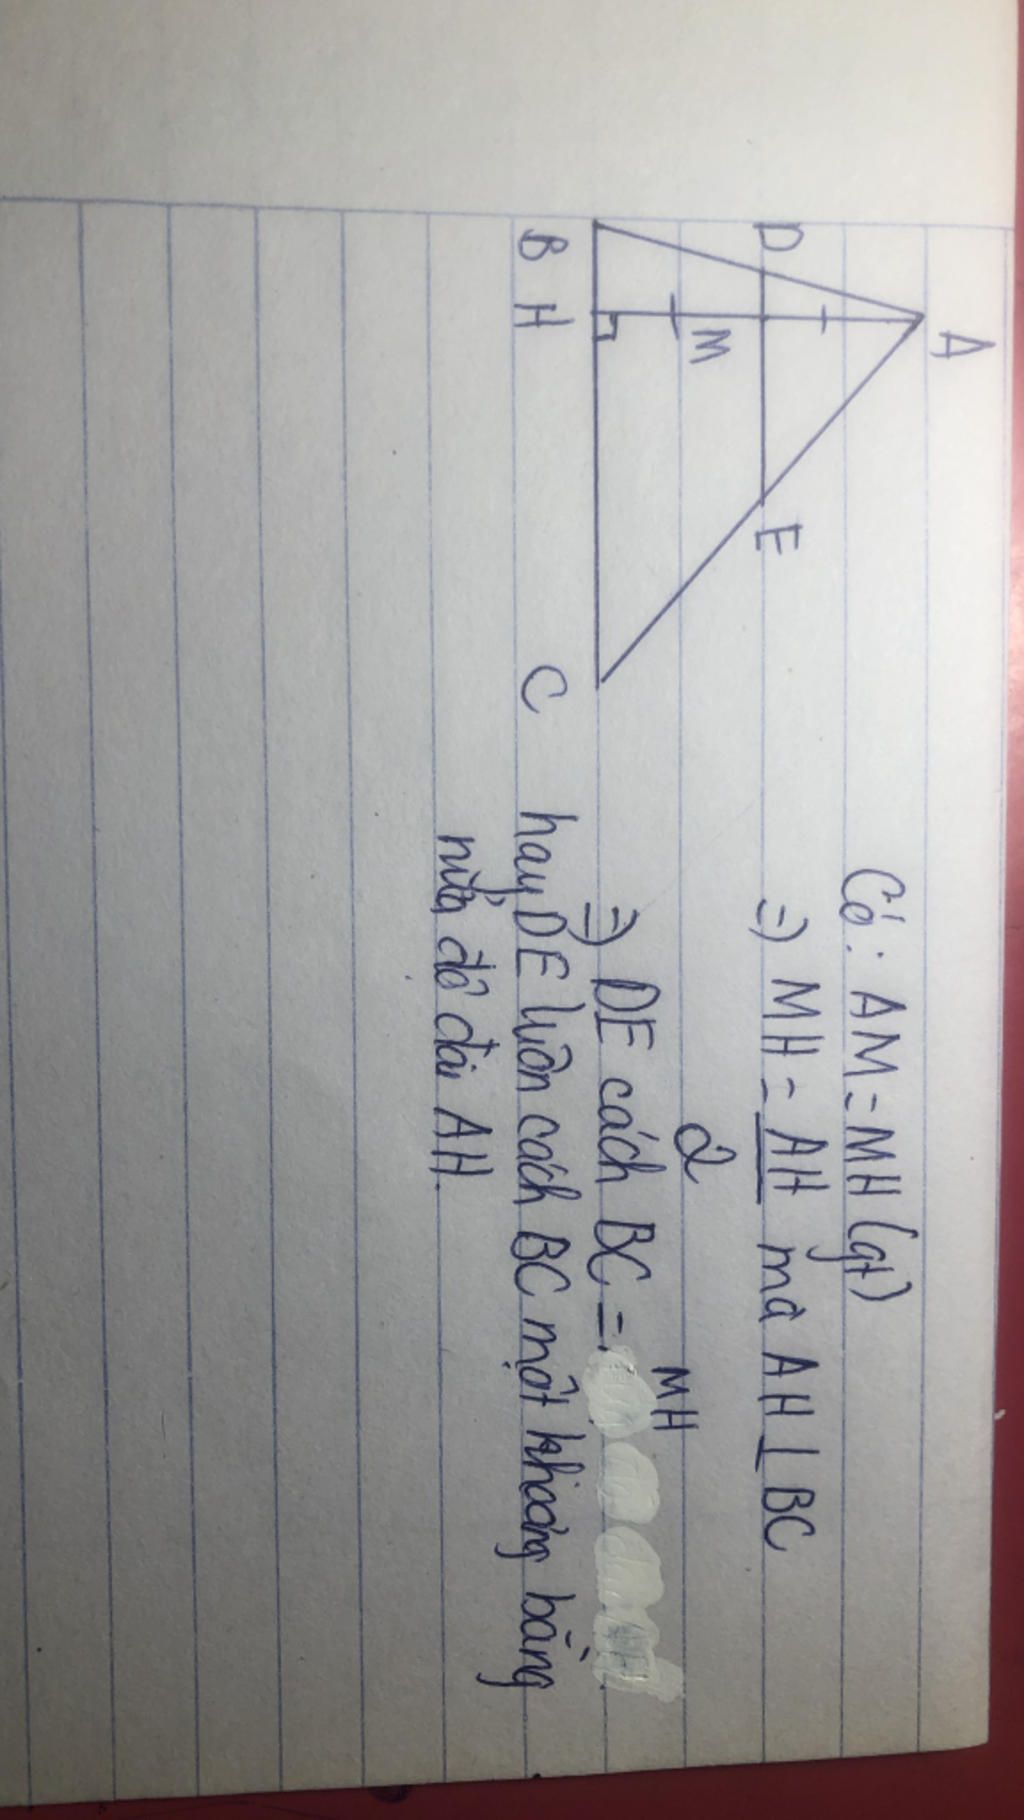 A
D
E
M
B H C
Có: AM = MH (gt)
=) MH = AH mà AH ⊥ BC
2
MH
=) DE cách BC =
hay DE luôn cách BC một khoảng bằng
nửa độ dài AH.